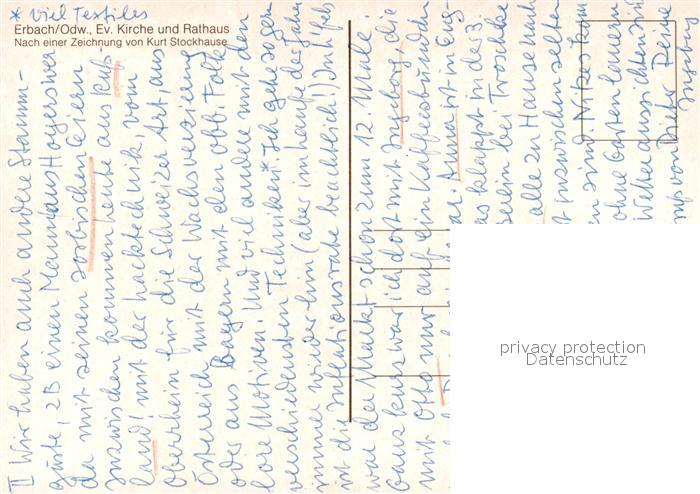 * viel Textiles
Erbach/Odw., Ev. Kirche und Rathaus
Nach einer Zeichnung von Kurt Stockhause
II Wir haben auch andere Stamm-
gäste, zB einen Mann aus Hoyerswer
da mit seinen sorbischen Eiern
Inzwischen kommen heute aus Ruß-
land, mit der Lacktechnik, vom
Oberrhein für die Schweizer Art, aus
Österreich mit der Wachsverzierung
oder aus Bayern mit den obb. Folk-
lore Motiven. Und viel andere mit den
verschiedensten Techniken.* Ich gehe sogar
immer wieder hin (aber im Laufe der Jahre
ist die Inflationsrate beachtlich!) In
war der Markt schon zum 12. Male.
Ganz kurz war ich dort mit Ingeborg, die
mit Otto nur auf ein Kaffeestündchen
war. Anna ist in Eng-
das klappt in des 3.
bei Troschke
alle zu Hause und
ist inzwischen selten
sind. Nizza
ohne Garten lauern
Wetteraussichten sind
von Dir Deine
privacy protection
Datenschutz